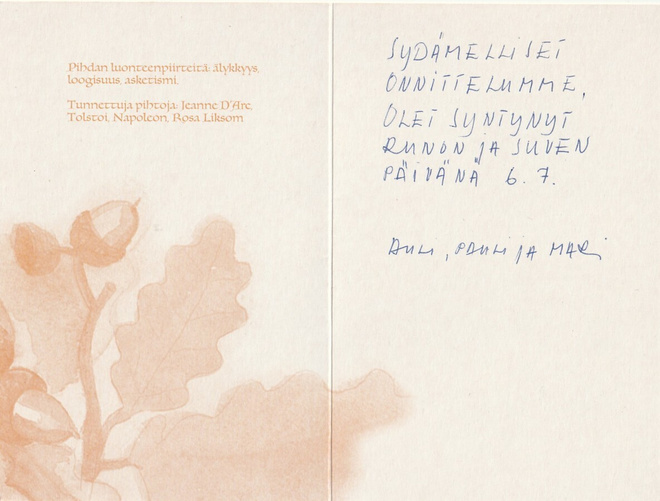 Pihdan luonteenpiirteitä: älykkyys,
loogisuus, asketismi.
Tunnettuja pihtoja: Jeanne D'Arc,
Tolstoi, Napoleon, Rosa Liksom
SYDÄMELLISET
ONNITTELUMME,
OLET SYNTYNYT
RUNON JA SUVEN
PÄIVÄNÄ 6.7.
AULI, PAULI JA MARI